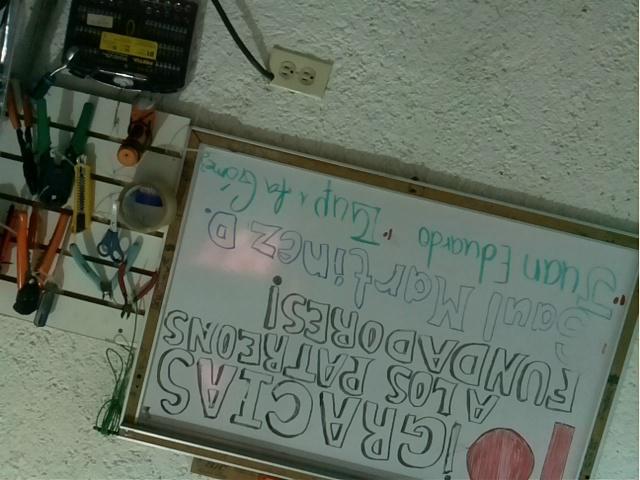 ¡GRACIAS
A LOS PATREONS
FUNDADORES!
Saul Martinez D.
Juan Eduardo